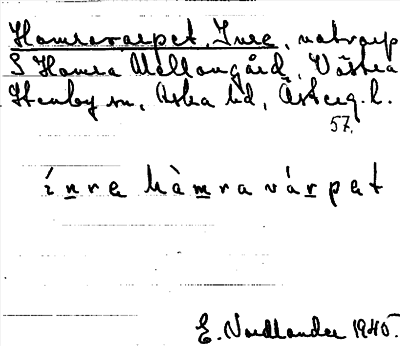 Hamravarpet, Inre, notvarp
S Hamra Mellangård, Västra
Stenby sn, Aska hd, Österg. l.
57.
ínre hàmra várpet
E. Nordlander 1940.